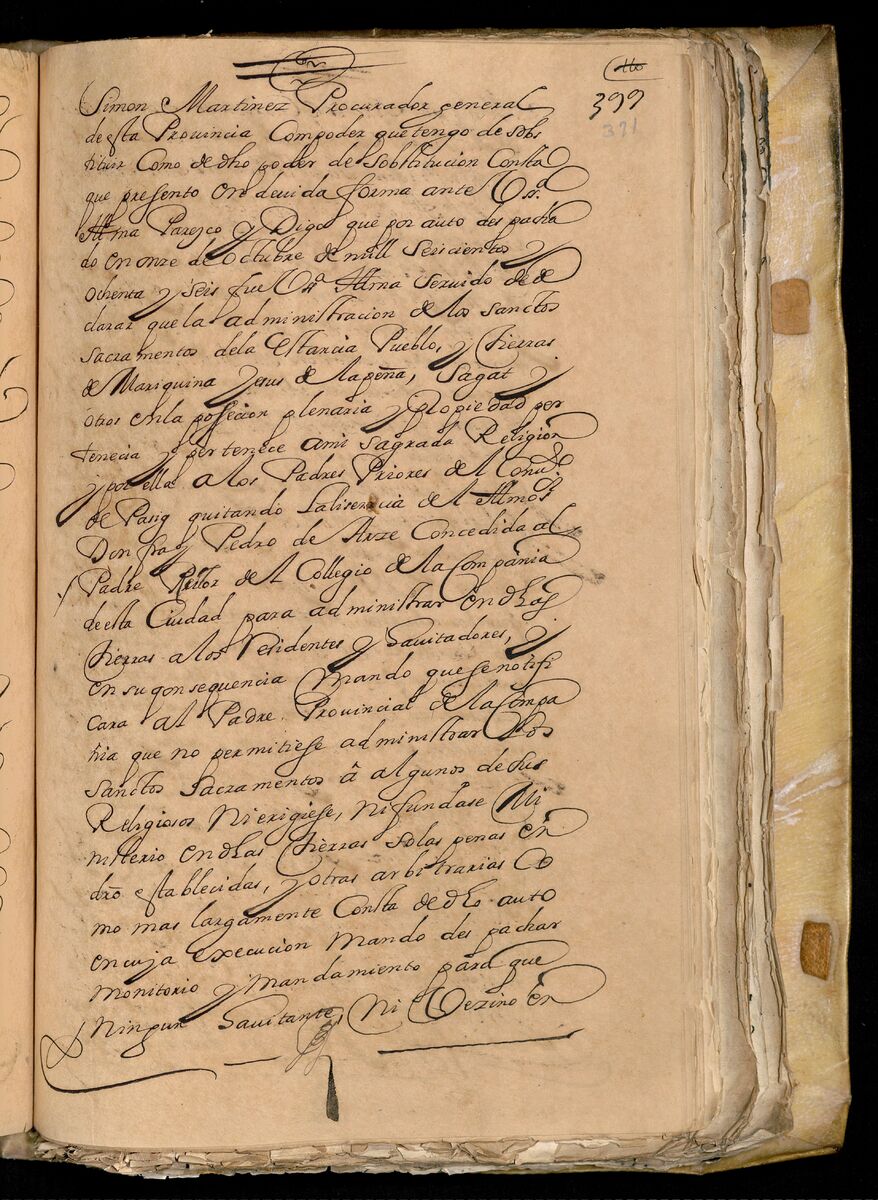 399
371
Simon Martinez Procurador general
de esta Provincia Compoder que tengo de sobs
tituir Como de dho poder de sobstitucion Consta
que presento en devida forma ante Vsª
Illma Parezco y Digo que por auto despacha
do en onze de Octubre de mill seiscientos y
ochenta y seis fue Vsª Illma servido de de
clarar que la administracion de los sanctos
sacramentos dela Estancia Pueblo, y tierras
de Mariquina Jesus de la peña, Sagat y
otros en la possecion plenaria y propiedad per
tenecia y pertenece ami sagrada Religion
y por ella alos Padres Priores del Convto
de Pasig quitando La lisencia del Illmo sr
Don fray Pedro de Arze Concedida al
Padre Rector del Collegio de la Compañia
de esta Ciudad para administrar en dhas
tierras a los Residentes y havitadores, y
en su qonsequencia Mando que se notifi
cara al Padre Provincial de la Compa
ñia que no permitiese administrar Los
Sanctos Sacramentos â algunos de sus
Religiosos Ni exigiese, ni fundase Mi
nisterio en dhas tierras so las penas en
dro establecidas, y otras arbitrarias Co
mo mas largamente Consta de dho auto
en cuja execucion Mando despachar
Monitorio y Mandamiento para que
Ningun havitante, Ni Vezino en